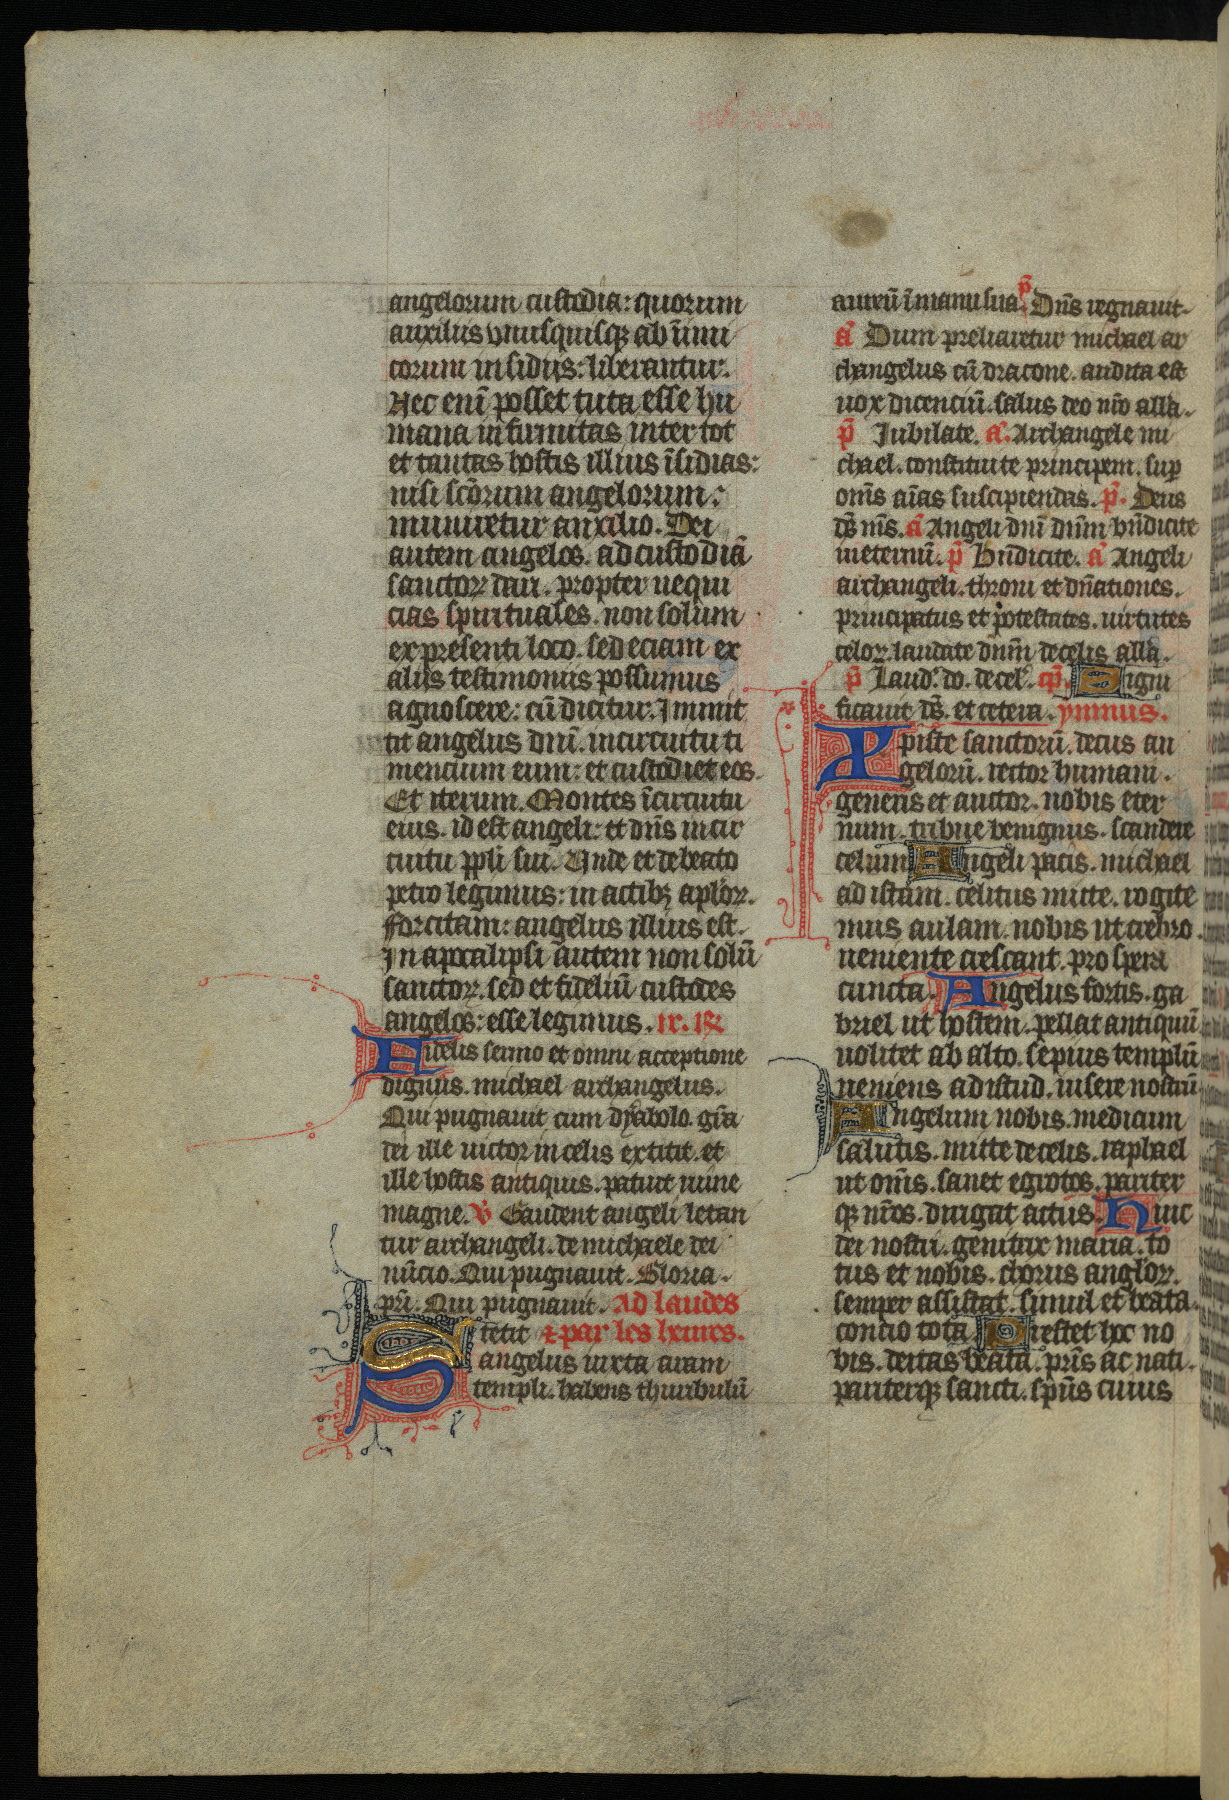 angelorum custodia: quorum
auxiliis vnusquisq; ab inimi
corum insidiis: liberantur.
Nec eni posset tuta esse hu
mana infirmitas inter tot
et tantas hostis illius īsidias:
nisi scōrum angelorum:
muniretur auxilio. Dei
autem angelos. ad custodiā
sanctoꝝ dari. propter nequi
cias spirituales. non solum
ex presenti loco. sed eciam ex
aliis testimoniis possumus
agnoscere: cū dicitur. Immit
tit angelus dnī. in circuitu ti
mencium eum: et custodiet eos.
Et iterum. Montes īcircuitu
eius. id est angeli: et dn̄s in cir
cuitu ppl̄i sui. Vnde et de beato
petro legimus: in actib; aploꝝ.
Forcitam: angelus illius est.
In apocalipsi autem non solū
sanctoꝝ. sed et fideliū custodes
angelos: esse legimus. ix. ℟
Fidelis sermo et omni acceptione
dignus. michael archangelus.
Qui pugnauit cum dyabolo. gr̄a
dei ille uictor in celis extitit. et
ille hostis antiquis. patuit ruine
magne. ℣ Gaudent angeli letan
tur archangeli. de michaele dei
nūcio. Qui pugnauit. Gloria.
pr̄i. Qui pugnauit. Ad laudes
Stetit ⁊ par les heures.
angelus iuxta aram
templi. habens thuribulū
aureū ī manu sua. p̄. Dn̄s regnauit.
a͞ Dum preliaretur michael ar
changelus cū dracone. audita est
uox dicenciū. salus deo nr̄o all̄a.
p̄ Iubilate. a͞. Archangele mi
chael. constitui te principem. sup
om̄s aīas suscipiendas. p̄. Deus
ds̄ m̄s. a͞ Angeli dnī dnm̄ bn̄dicite
in eternū. p̄ Bn̄dicite. a͞ Angeli
archangeli. throni et dn̄ationes.
principatus et potestates. uirtutes
celoꝝ. laudate dnm̄ de celis all̄a.
p̄ Laud. do. de cel. cp̄. Signi
ficauit ds̄. et cetera. ymnus.
Xpiste sanctorū. decus an
gelorū. rector humani.
generis et auctor. nobis eter
num. tribue benignus. scandere
celum Angeli pacis. michael
ad istam. celitus mitte. rogita
mus aulam. nobis ut crebro.
ueniente crescant. prospera
cuncta. Angelus fortis. ga
briel ut hostem. pellat antiquū
uolitet ab alto. sepius templū
ueniens ad istud. uisere nostrū
Angelum nobis. medicum
salutis. mitte de celis. raphael
ut om̄s. sanet egrotos. pariter
q; nr̄os. dirigat actus. Hinc
dei nostri. genitrix maria. to
tus et nobis. chorus angloꝝ.
semper assistat. simul et beata.
concio tota. Prestet hoc no
bis. deitas beata. pr̄is ac nati.
pariterq; sancti. sp̄us cuius